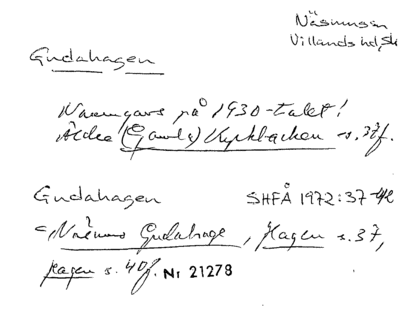 Näsumsn
Villands hd, Sk
Gudahagen
Namngavs på 1930-talet!
Äldre (Gamla) Kyrkbacken s. 37f.
Gudahagen SHFÅ 1972:37-42
Näsums Gudahage, Hagen s. 37,
Hagen s. 40f. Nr 21278